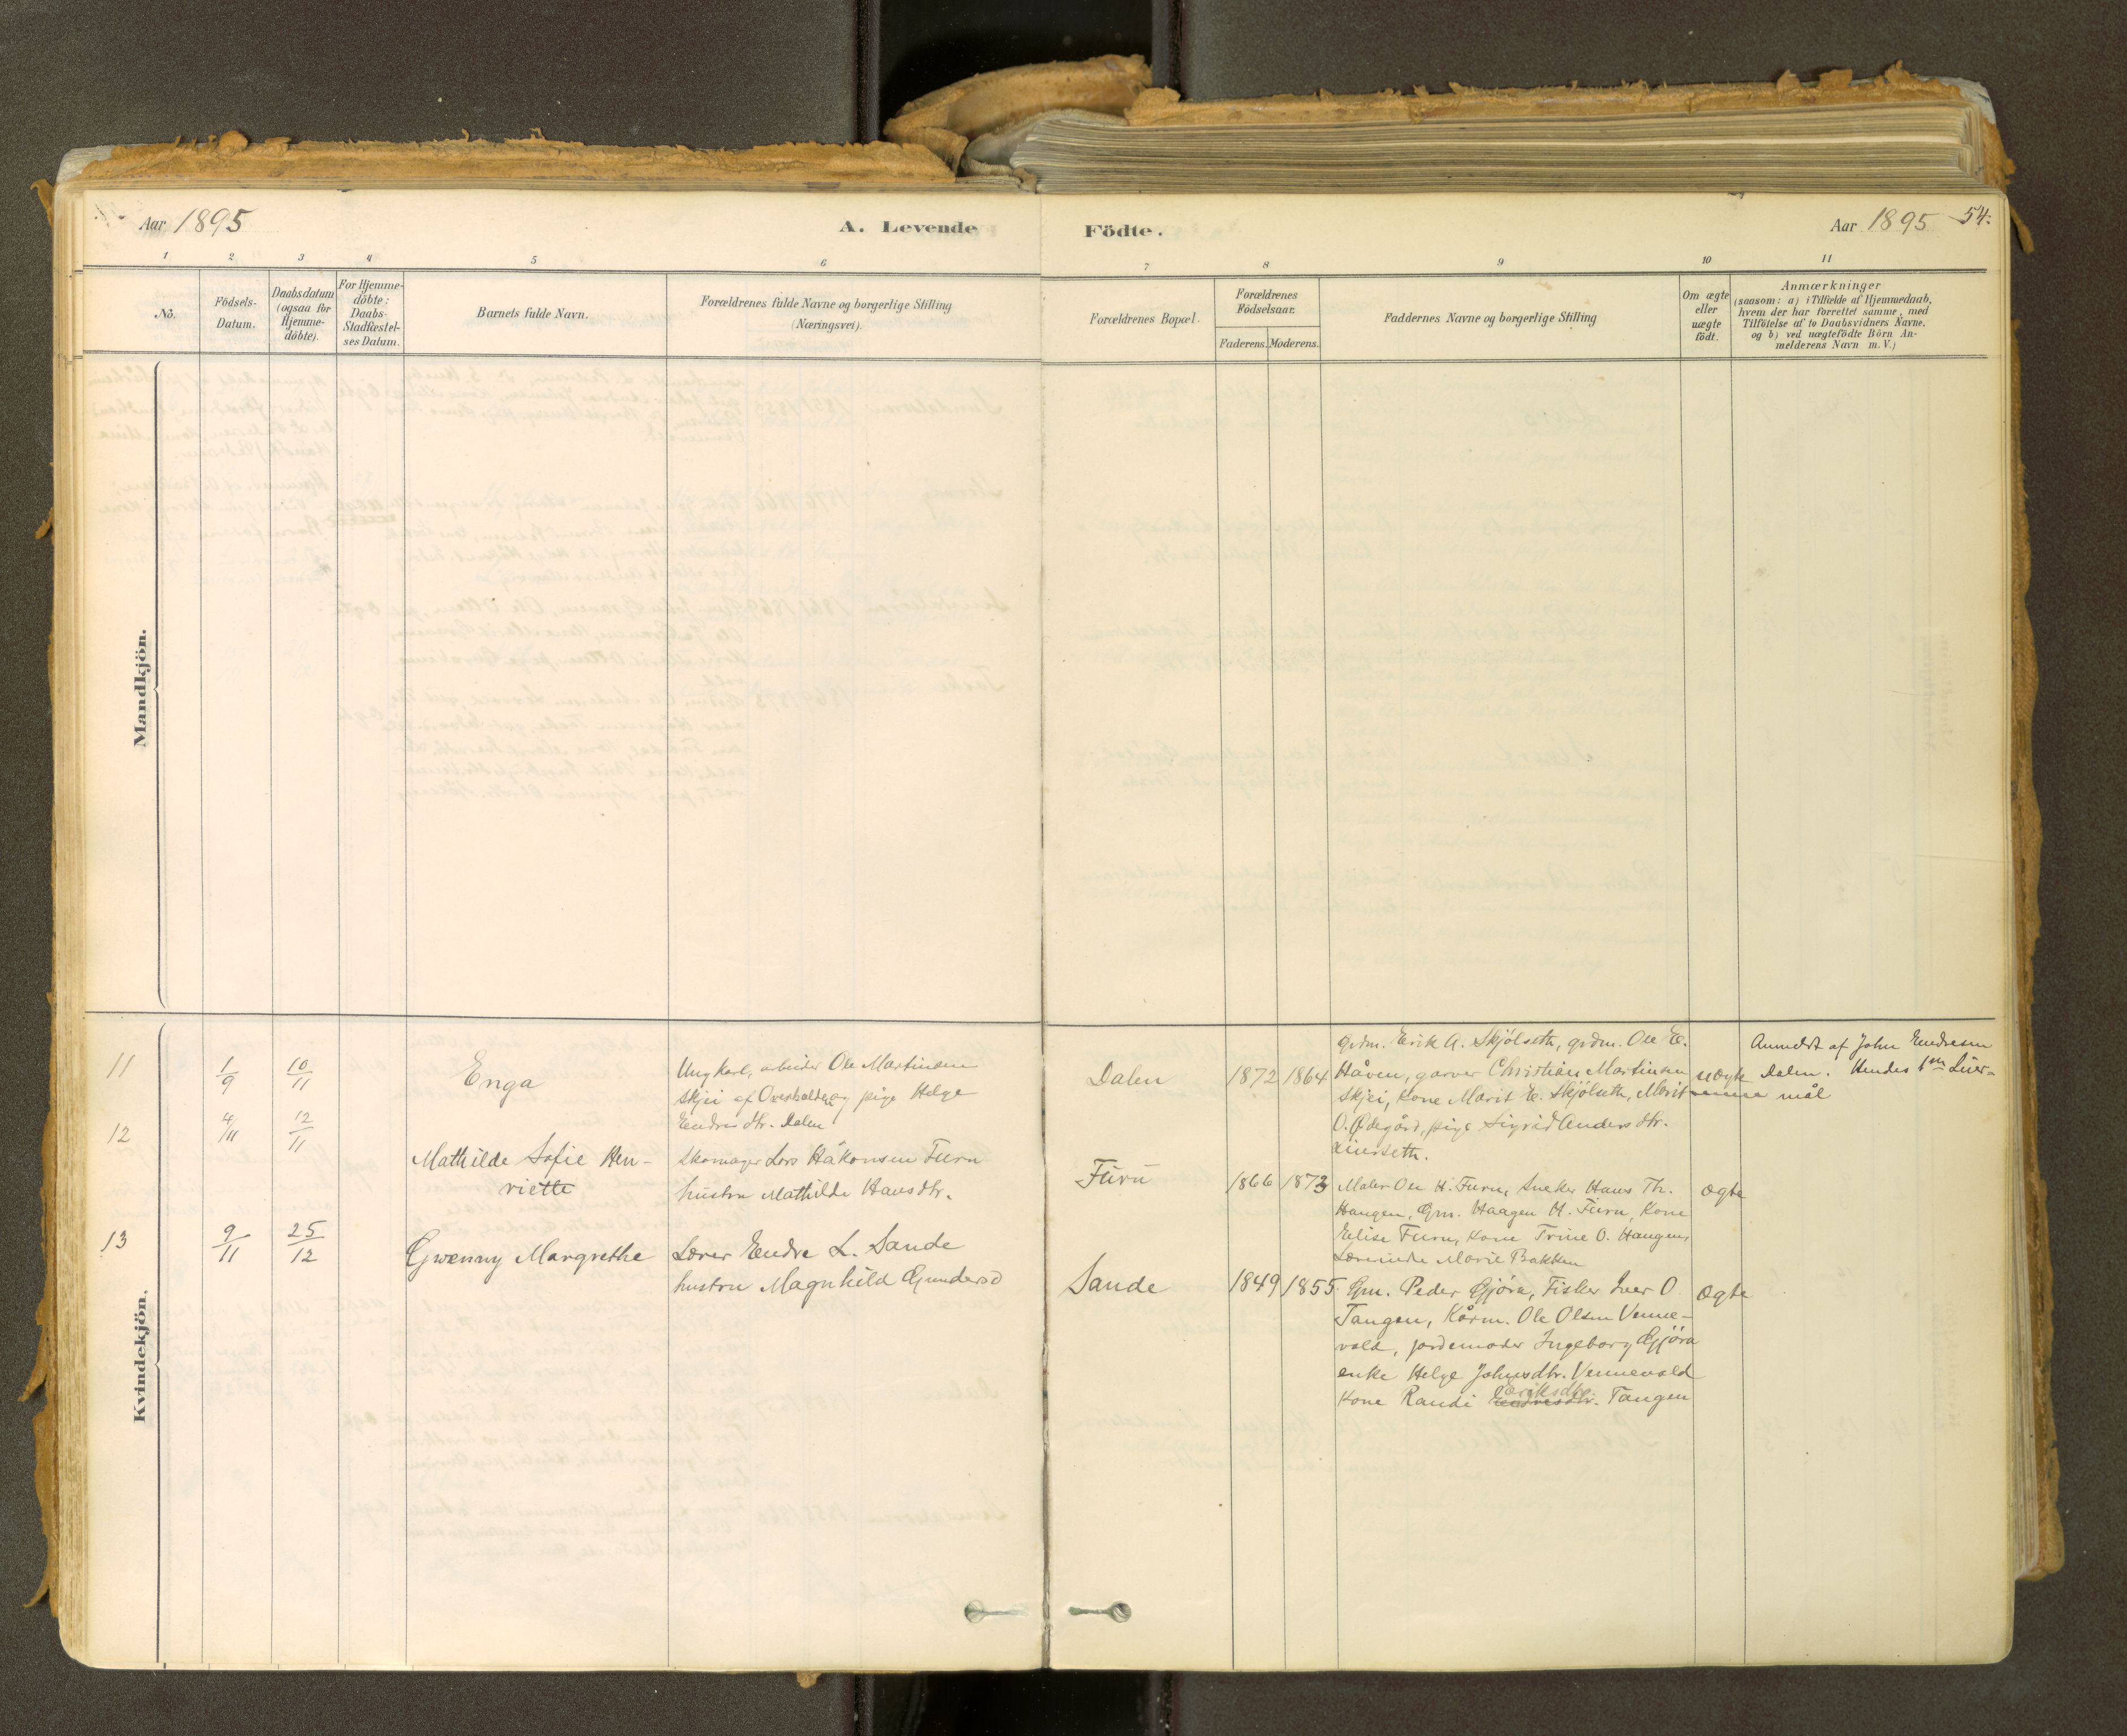 Aar 1895
A. Levende
Födte.
Aar 1895
54.
1 2 3 4 5 6
7 8 9 10 11
No.
Födsels-
Datum.
Daabsdatum
(ogsaa for
Hjemme-
döbte).
For Hjemme-
döbte:
Daabs-
Stadfæstel-
ses Datum.
Barnets fulde Navn.
Forældrenes fulde Navne og borgerlige Stilling
(Næringsvei).
Forældrenes Bopæl.
Forældrenes
Födselsaar.
Faderens. Moderens.
Faddernes Navne og borgerlige Stilling
Om ægte
eller
uægte
födt.
Anmærkninger
(saasom: a) i Tilfælde af Hjemmedaab,
hvem der har forrettet samme, med
Tilföielse af to Daabsvidners Navne,
og b) ved uægtefödte Börn An-
melderens Navn m. V.)
Mandkjön.
Kvindekjön.
11
1/9
10/11
Enga
Ungkarl, arbeider Ole Martinsen
Skjei af Overhalden og pige Helge
Endresdtr. Dalen
Dalen
1872 1864
Grdm. Erik A. Skjölseth, grdm. Ole E.
Håven, garver Christian Martinsen
Skjei, Kone Marit E. Skjölseth, Marit
O. Ödegård, pige Sigrid Andersdtr.
uægte
Anmeldt af John Endresen
Dalen. Hendes 1ste Leier-
mål
12
4/11
12/11
Mathilde Sofie Hen-
riette
Skomager Lars Håkonsen Furu
hustru Mathilde Hansdtr.
Furu
1866 1873
Maler Ole H. Furu, Snekker Hans Th.
Haugen, Gm. Haagen H. Furu, Kone
Elise Furu, Kone Trine O. Haugen,
Lærerinde Marie Bakken
ægte
13
9/11
25/12
Gwenny Margrethe
Lærer Endre L. Sande
hustru Magnhild Gundersd
Sande
1849 1855
Gm. Peder Gjöra, Fisker Iver O.
Tangen, Kårm. Ole Olsen Venne-
vold, jordemoder Ingeborg Gjöra
enke Helge Johnsdtr. Vennevold
Kone Randi Endresdtr. Eriksdtr. Tangen
ægte